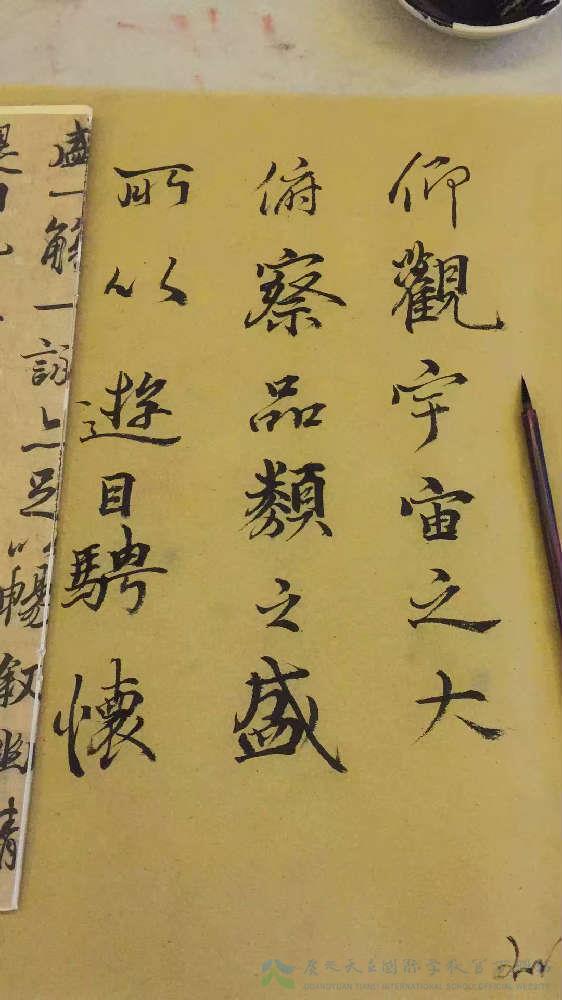 仰觀宇宙之大
俯察品類之盛
所以遊目騁懷
盛一觴一詠亦足以暢敘幽情
广元天立国际学校官方网站
GUANGYUAN TIANLI INTERNATIONAL SCHOOL OFFICIAL WEBSITE